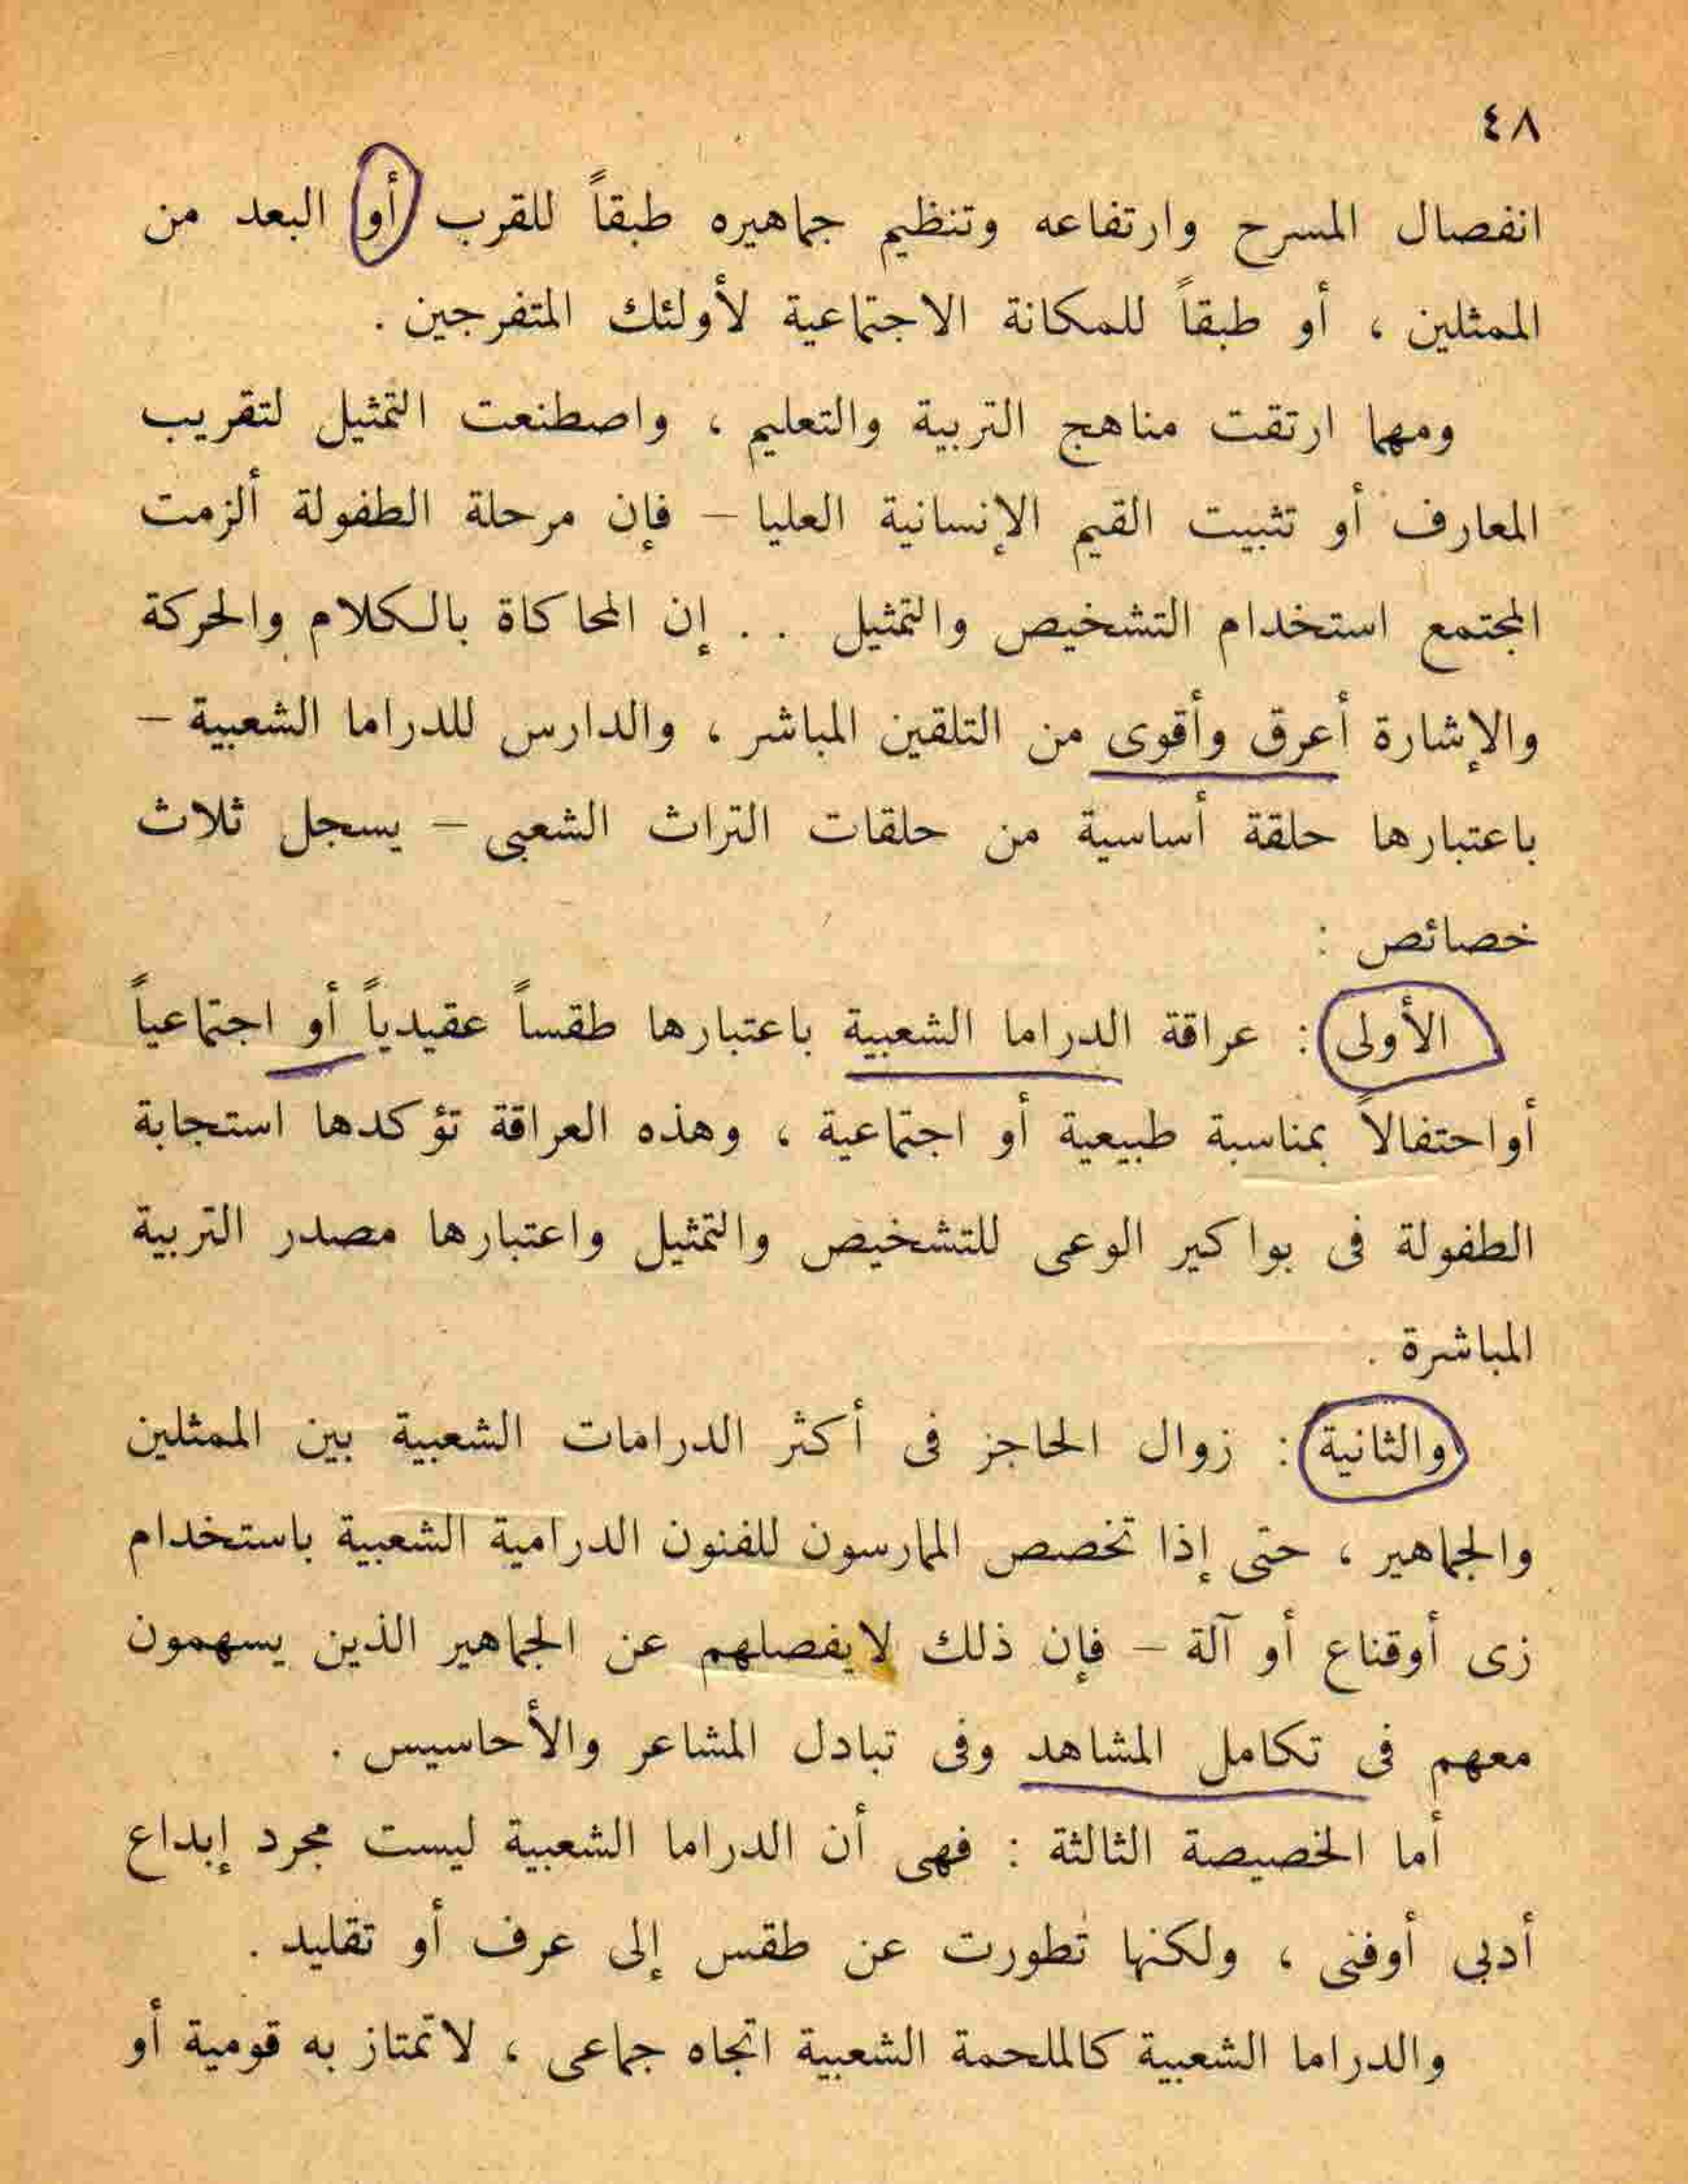 ٤٨
انفصال المسرح وارتفاعه وتنظيم جماهيره طبقاً للقرب أو البعد من
الممثلين ، أو طبقاً للمكانة الاجتماعية لأولئك المتفرجين .
ومهما ارتقت مناهج التربية والتعليم ، واصطنعت التمثيل لتقريب
المعارف أو تثبيت القيم الإنسانية العليا – فإن مرحلة الطفولة ألزمت
المجتمع استخدام التشخيص والتمثيل . . إن المحاكاة بالكلام والحركة
والإشارة أعرق وأقوى من التلقين المباشر ، والدارس للدراما الشعبية –
باعتبارها حلقة أساسية من حلقات التراث الشعبى – يسجل ثلاث
خصائص :
الأولى : عراقة الدراما الشعبية باعتبارها طقساً عقيدياً أو اجتماعياً
أواحتفالاً بمناسبة طبيعية أو اجتماعية ، وهذه العراقة تؤكدها استجابة
الطفولة فى بواكير الوعى للتشخيص والتمثيل واعتبارها مصدر التربية
المباشرة .
والثانية : زوال الحاجز فى أكثر الدرامات الشعبية بين الممثلين
والجماهير ، حتى إذا تخصص الممارسون للفنون الدرامية الشعبية باستخدام
زى أوقناع أو آلة – فإن ذلك لايفصلهم عن الجماهير الذين يسهمون
معهم فى تكامل المشاهد وفى تبادل المشاعر والأحاسيس .
أما الخصيصة الثالثة : فهى أن الدراما الشعبية ليست مجرد إبداع
أدبى أوفنى ، ولكنها تطورت عن طقس إلى عرف أو تقليد .
والدراما الشعبية كالملحمة الشعبية اتجاه جماعى ، لاتمتاز به قومية أو